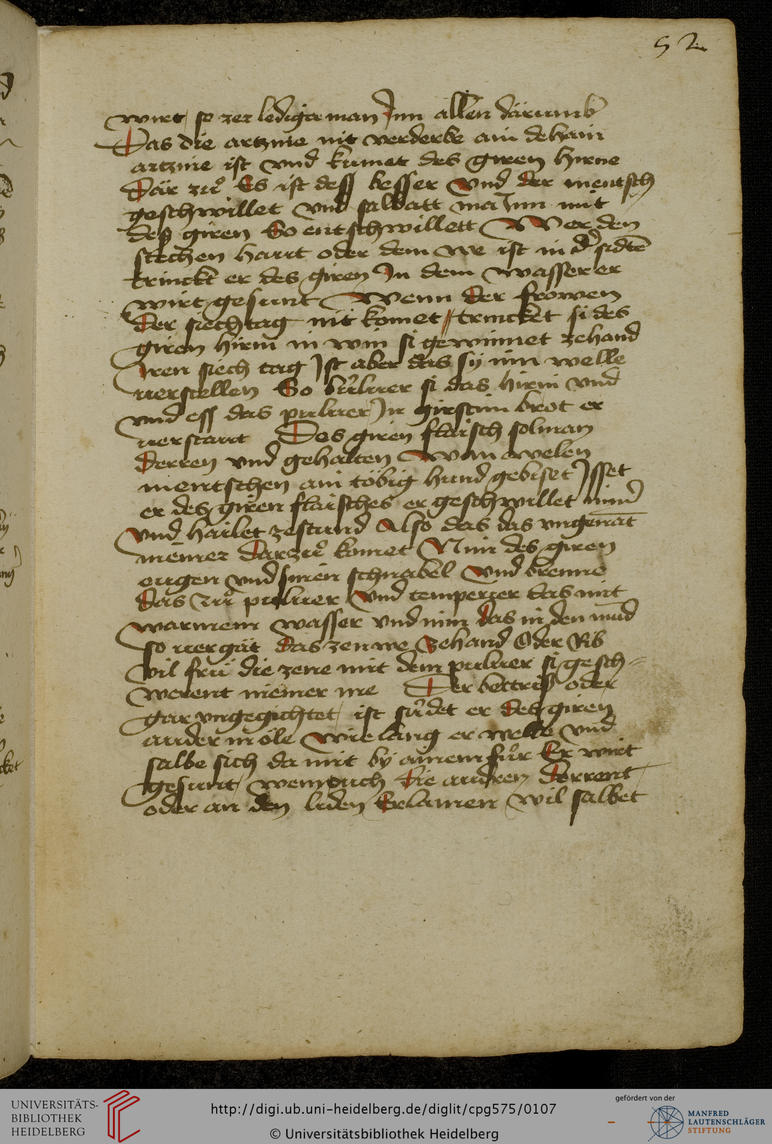 52
wirt so zer ledige man Inn allen därumb
Das die artznie nit verderbe ain dehain
artznie ist vnd kumet des giren hirne
Där zuͦ Es ist dess besser vnd der mentsch
geschwillet vnd salbatt ma Inn mit
des giren So entschwillett Wer den
stechen hatt oder dem we ist in der sidte
trinckt er des giren In dem wasser er
wirt gesunt Wenn der frowen
der siechtag nit komet trincket si des
giren hirni in win si gewinnet zehand
iren siech tag Ist aber das sy inn welle
verstellen So bulfer si das hirni vnd
vnd ess das pulfer In girstim brot er
verstatt Des giren flaisch sol man
derren vnd gehalten Wan welen
mentschen ain tobig hund gebiset Isset
er des giren flaisches er geschwillet nimd
vnd hailet zestund Also das das vngenāt
niemer darzuͦ komet Nim des giren
ougen vnd sinen schnabel vnd brenne
das zuͦ pulfer vnd temperier das mit
warmem wasser vnd nim das in den mūd
so vergät das zen we zehand Oder Rib
vil frü die zene mit dem pulfer si gesch-
werent niemer me Der bettris oder
gar vngegichtet ist südet er des giren
auder in öle wie lang er welle vnd
salbe sich da mit by ainem für Er wirt
gesunt wem ouch die audren dorrent
oder an den liden Erlamen wil salbet
UNIVERSITÄTS-
BIBLIOTHEK
HEIDELBERG
http://digi.ub.uni-heidelberg.de/diglit/cpg575/0107
© Universitätsbibliothek Heidelberg
gefördert von der
MANFRED
LAUTENSCHLÄGER
STIFTUNG